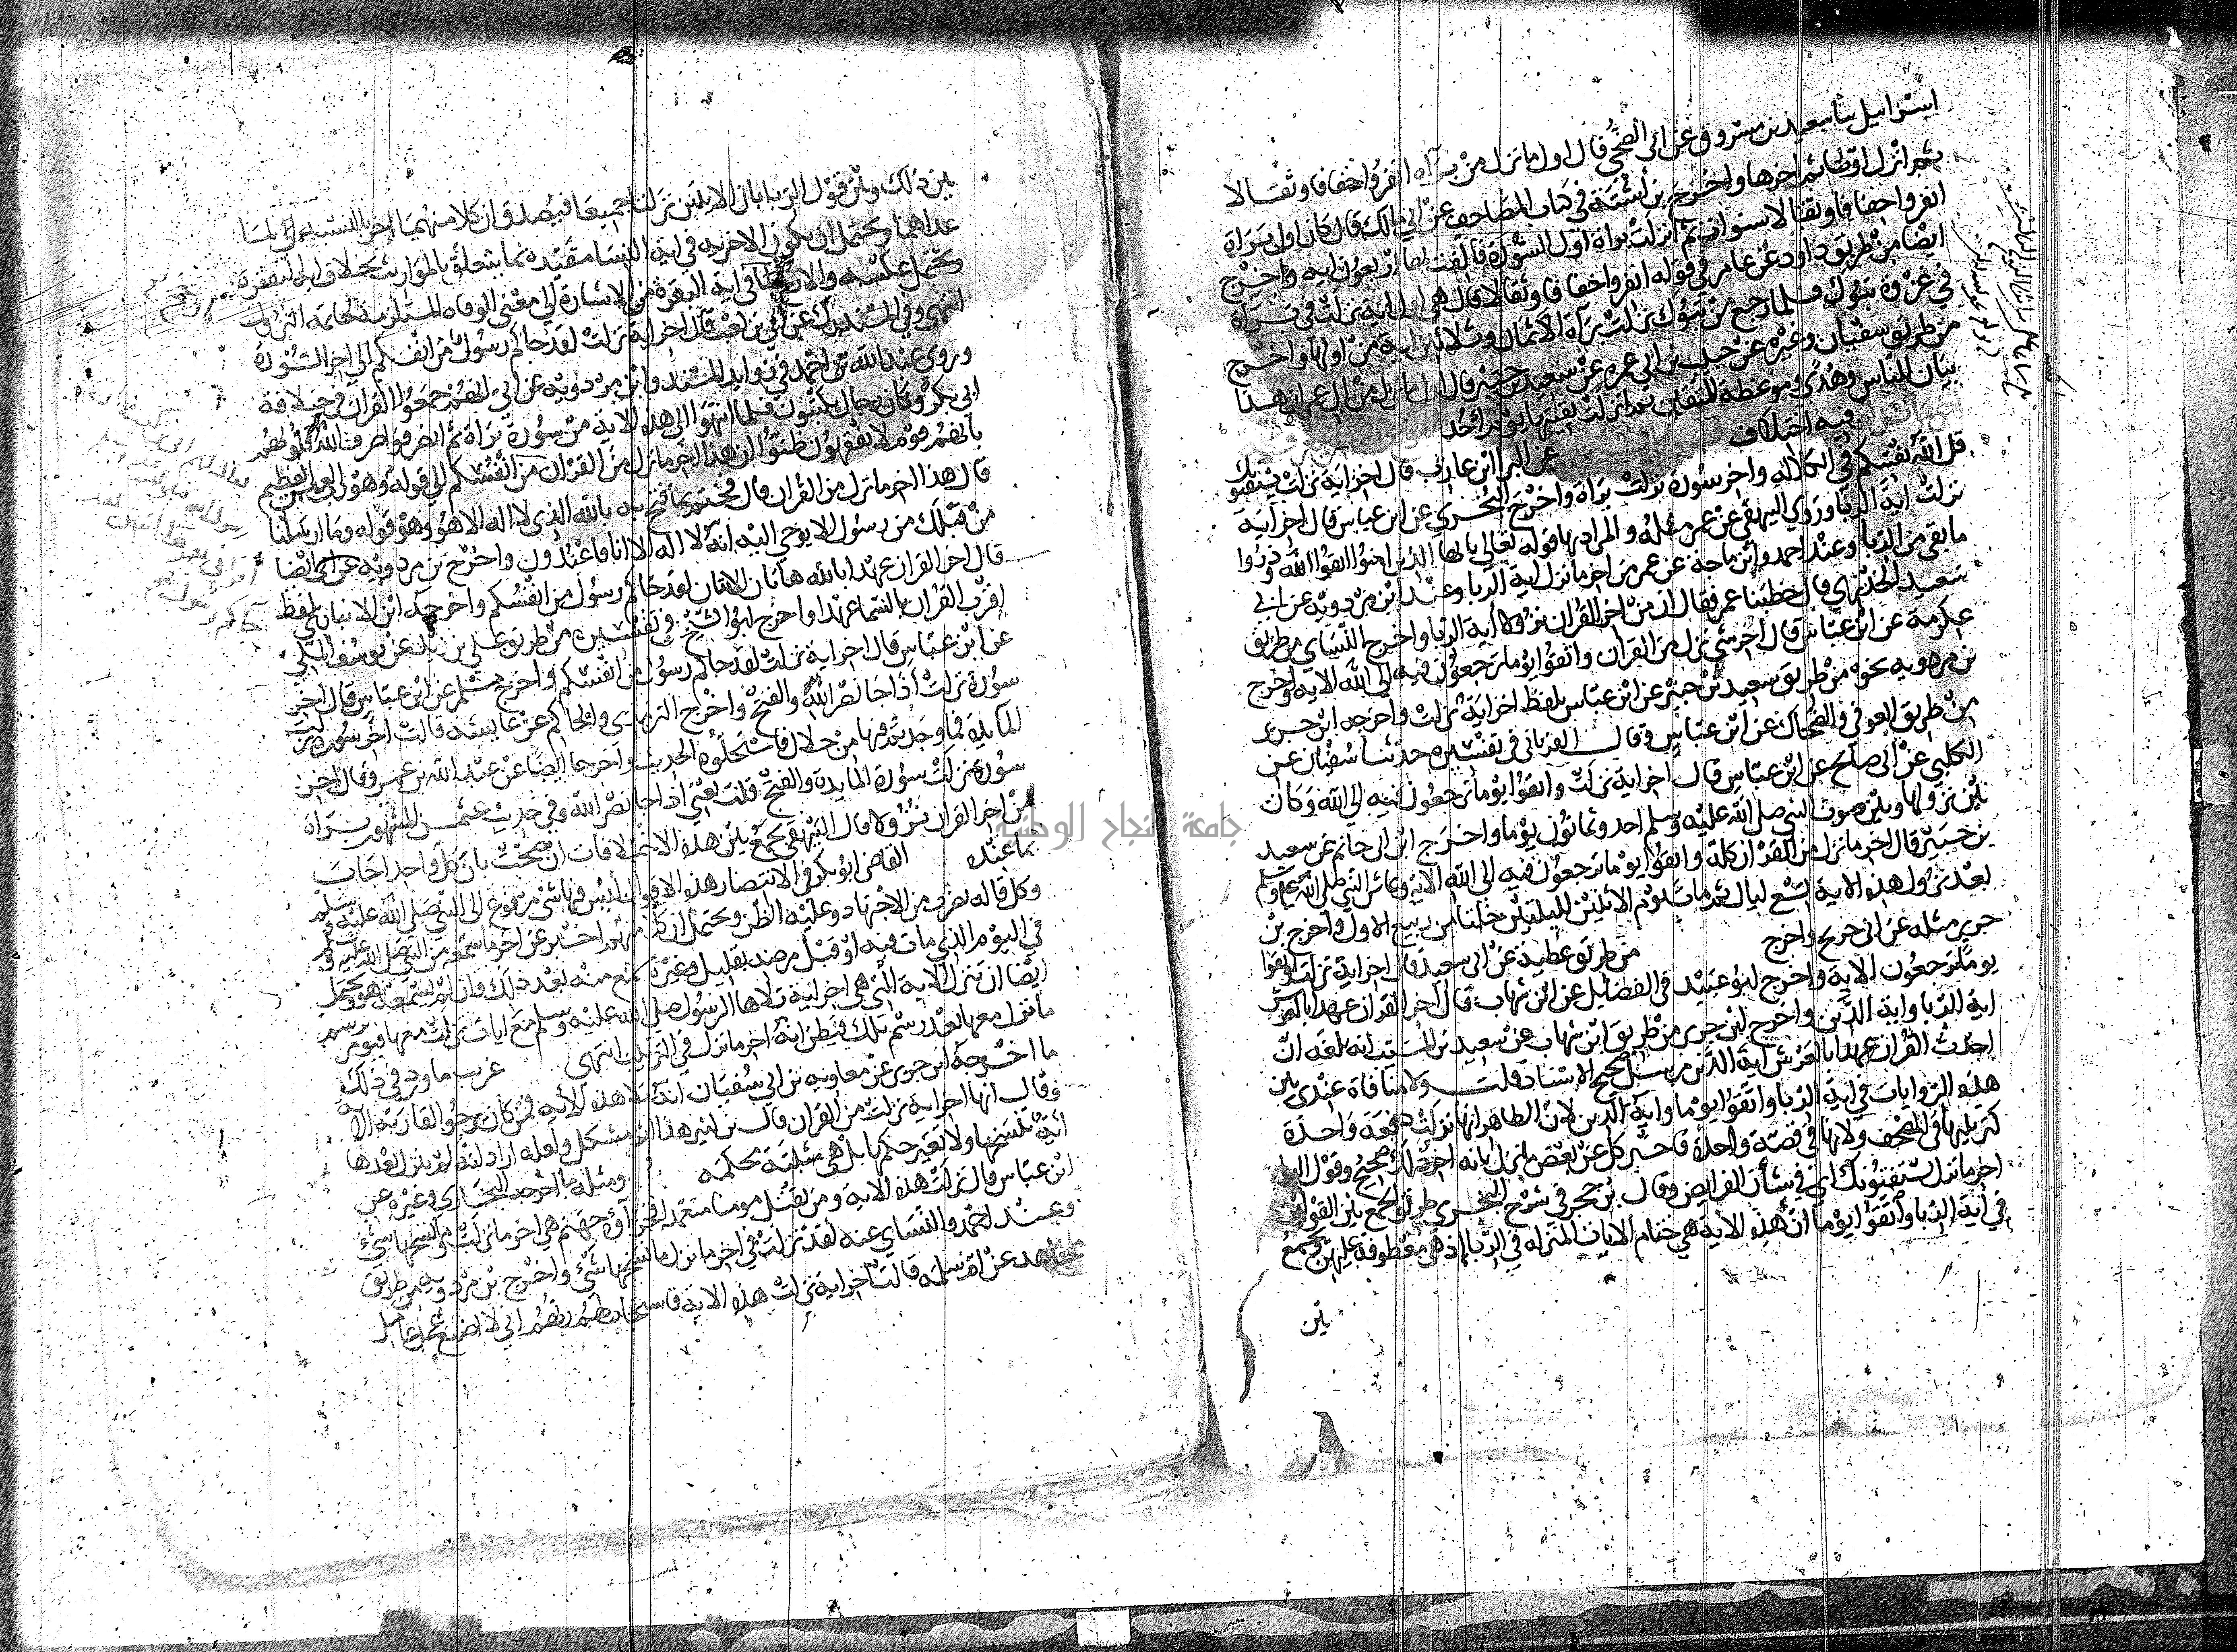 اسرابيل ثنا سعيد بن مسروق عن ابي الضحى قال اول ما نزل من براه انفروا خفافا وثقالا
ثم انزل اولها ثم اخرها واخرج بن اشته في كتاب المصاحف عن ابي مالك قال كان اول براه
انفروا خفافا وثقالا سنوات ثم انزلت براه اول السورة فالفت بها اربعون ايه واخرج
ايضا من طريق داود عن عامر في قوله انفروا خفافا وثقالا قال هي اول ايه نزلت في براه
في غزوة تبوك فلما رجع من تبوك نزلت براة الا ثمان وثلاثين اية من اولها واخرج
من طريق سفيان وغيره عن حبيب بن ابي عمره عن سعيد بن جبير قال اول ما نزل من ال عمران هذا
بيان للناس وهدى وموعظة للمتقين ثم انزلت بقيتها يوم احد
فيه اختلاف
عن البرا ابن عازب قال اخر اية نزلت يستفتونك
قل الله يفتيكم في الكلاله واخر سورة نزلت براة واخرج البخري عن ابن عباس قال اخر ايه
نزلت اية الربا وروى البيهقي عن عمر مثله والمراد بها قوله تعالى يا ايها الذين امنوا اتقوا الله وذروا
ما بقي من الربا وعند احمد وابن ماجة عن عمر من اخر ما نزل اية الربا وعند ابن مردويه عن ابي
سعيد الخدري قال خطبنا عمر فقال ان من اخر القران نزولا اية الربا واخرج النساي من طريق
عكرمة عن ابن عباس قال اخر شي نزل من القران واتقوا يوما ترجعون فيه الى الله الايه واخرج
بن مردويه نحوه من طريق سعيد بن جبير عن ابن عباس بلفظ اخر اية نزلت واخرجه ابن جرير
من طريق العوفي والضحاك عن ابن عباس وقال الفريابي في تفسيره حدثنا سفيان عن
الكلبي عن ابي صالح عن ابن عباس قال اخر اية نزلت واتقوا يوما ترجعون فيه الى الله وكان
بين نزولها وبين موت النبي صلى الله عليه وسلم احد وثمانون يوما واخرج ابن ابي حاتم عن سعيد
بن جبير قال اخر ما نزل من القران كله واتقوا يوما ترجعون فيه الى الله الاية وعاش النبي صلى الله عليه وسلم
بعد نزول هذه الاية تسع ليال ثم مات يوم الاثنين لليلتين خلتا من ربيع الاول واخرج بن
جرير مثله عن ابن جريح واخرج من طريق عطية عن ابي سعيد قال اخر اية نزلت واتقوا
يوما ترجعون الاية واخرج ابو عبيد في الفضايل عن ابن شهاب قال اخر القران عهدا بالعرش
اية الربا واية الدين واخرج ابن جرير من طريق ابن شهاب عن سعيد بن المسيب انه بلغه ان
احدث القران عهدا بالعرش اية الدين مرسل صحيح الاسناد قلت ولا منافاة عندي بين
هذه الروايات في اية الربا واتقوا يوما واية الدين لان الظاهر انها نزلت دفعة واحدة
كترتيبها في المصحف ولانها في قصة واحدة فاخبر كل عن بعض ما نزل بانه اخر وذلك صحيح وقول البرا
اخر ما نزل يستفتونك اي في شان الفرايض وقال بن حجر في شرح البخري طريق الجمع بين القولين
في اية الربا واتقوا يوما ان هذه الاية هي ختام الايات المنزله في الربا اذ هي معطوفة عليهن ويجمع
بين
بين ذلك وبين قول البرا بان الايتين نزلتا جميعا فيصدق ان كلا منهما اخر بالنسبه الى ما
عداهما ويحتمل ان يكون الاخريه في اية النسا مقيدة بما يتعلق بالمواريث بخلاف اية البقرة
ويحتمل عكسه والارجح لما في اية البقرة من الاشارة الى معنى الوفاه المستلزمة لخاتمة النزول
انتهى وفي المستدرك عن ابي بن كعب قال اخر اية نزلت لقد جاكم رسول من انفسكم الى اخر السورة
وروى عبد الله بن احمد في زوايد المسند وابن مردويه عن ابي انهم جمعوا القران في خلافة
ابي بكر وكان رجال يكتبون فلما انتهوا الى هذه الاية من سورة براة ثم انصرفوا صرف الله قلوبهم
بانهم قوم لا يفقهون ظنوا ان هذا اخر ما نزل من القران من انفسكم الى قوله وهو رب العرش العظيم
قال هذا اخر ما نزل من القران قال فختم بما فتح به بالله الذي لا اله الا هو وهو قوله وما ارسلنا
من قبلك من رسول الا يوحى اليه انه لا اله الا انا فاعبدون واخرج بن مردويه عن ابي ايضا
قال اخر القران عهدا بالله هاتان الايتان لقد جاكم رسول من انفسكم واخرجه ابن الانباري بلفظ
اقرب القران بالسما عهدا واخرج ابو الشيخ في تفسيره من طريق علي بن زيد عن يوسف المكي
عن ابن عباس قال اخر اية نزلت لقد جاكم رسول من انفسكم واخرج مسلم عن ابن عباس قال اخر
سورة نزلت اذا جا نصر الله والفتح واخرج الترمذي والحاكم عن عايشه قالت اخر سورة نزلت
المايدة فما وجدتم فيها من حلال فاستحلوه الحديث واخرجا ايضا عن عبد الله بن عمرو قال اخر
سورة نزلت سورة المايدة والفتح قلت يعني اذا جا نصر الله وفي حديث عثمن المشهور براة
من اخر القران نزولا قال البيهقي يجمع بين هذه الاختلافات ان صحت بان كل واحد اجاب
بما عنده القاضي ابو بكر في الانتصار هذه الاقوال ليس فيها شي مرفوع الى النبي صلى الله عليه وسلم
وكل قاله بضرب من الاجتهاد وغلبه الظن ويحتمل ان كلا منهم اخبر عن اخر ما سمعه من النبي صلى الله عليه وسلم
في اليوم الذي مات فيه او قبل مرضه بقليل وغيره سمع منه بعد ذلك وان لم يسمعه هو ويحتمل
ايضا ان تنزل الاية التي هي اخر اية تلاها الرسول صلى الله عليه وسلم مع ايات نزلت معها فيومر برسم
ما نزل معها بعد رسم تلك فيظن انه اخر ما نزل في الترتيب انتهى غريب ما ورد في ذلك
ما اخرجه ابن جرير عن معاويه بن ابي سفيان انه تلا هذه الايه فمن كان يرجو لقا ربه الايه
وقال انها اخر اية نزلت من القران قال بن كثير هذا اثر مشكل ولعله اراد انه لم ينزل بعدها
اية تنسخها ولا تغير حكمها بل هي مثبتة محكمه ومثله ما اخرجه البخاري وغيره عن
ابن عباس قال نزلت هذه الاية ومن يقتل مومنا متعمدا فجزاؤه جهنم هي اخر ما نزلت وما نسخها شئ
وعند احمد والنساي عنه لقد نزلت في اخر ما نزل ما نسخها شئ واخرج بن مردويه من طريق
مجاهد عن ام سلمه قالت اخر اية نزلت هذه الاية فاستجاب لهم ربهم اني لا اضيع عمل عامل
جامعة النجاح الوطنية